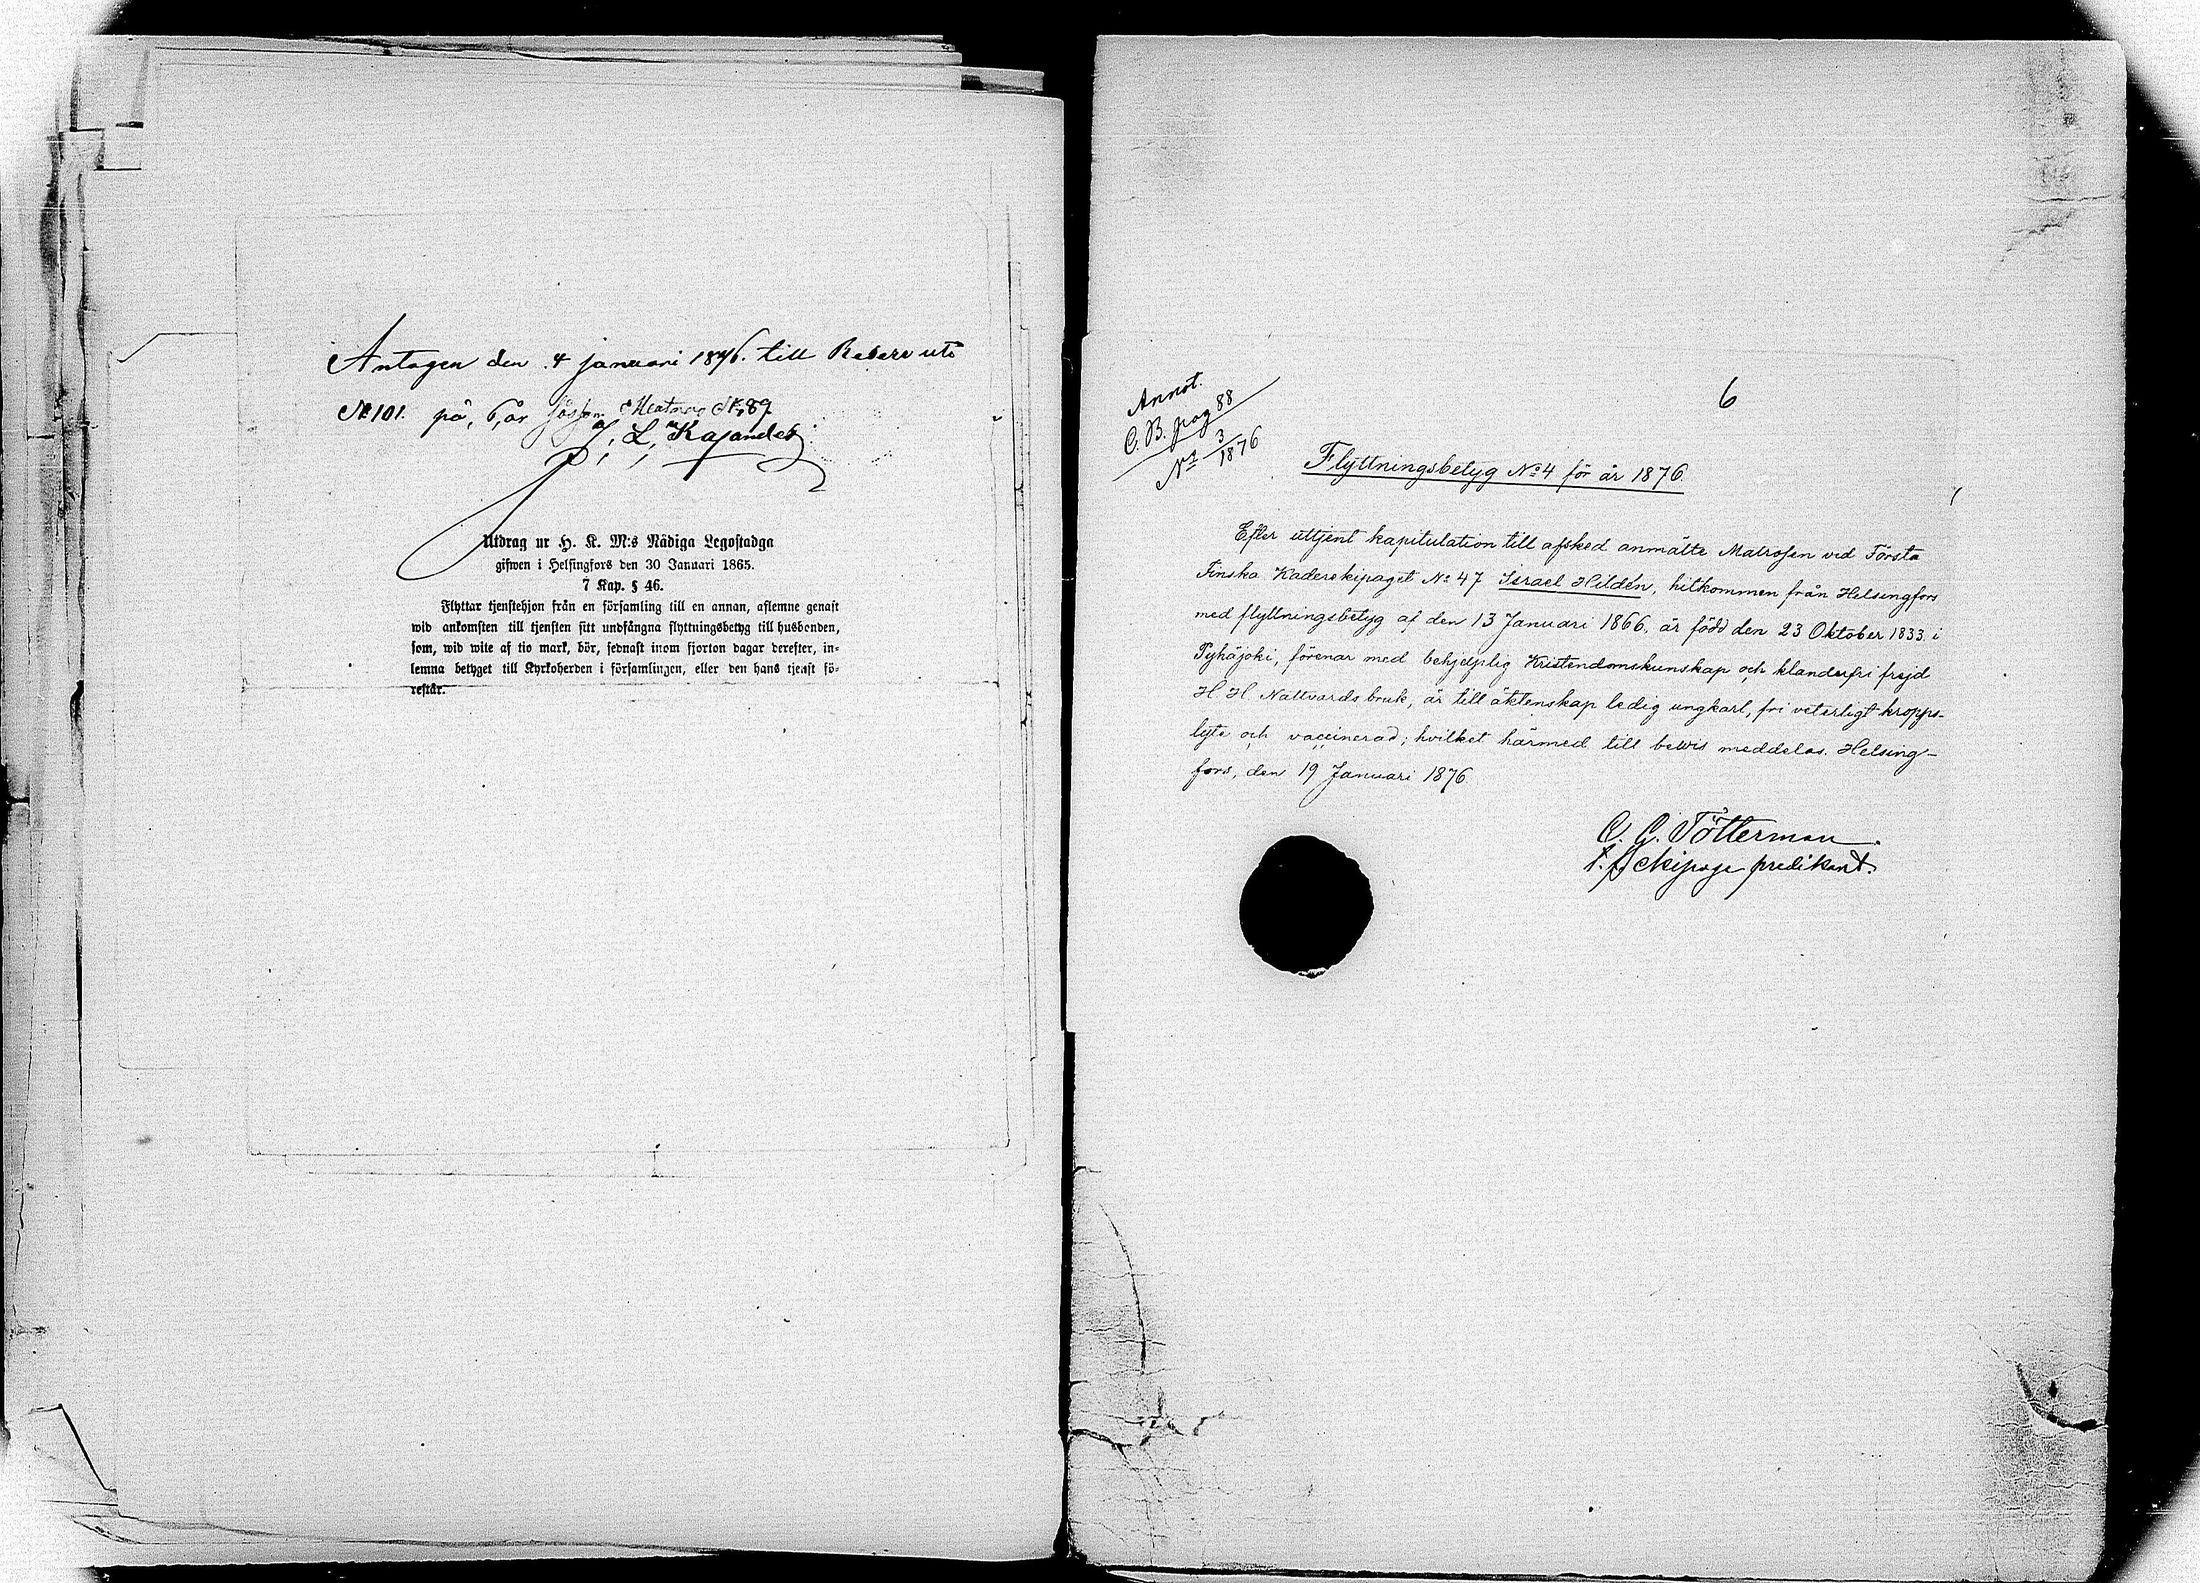 Antagen den 4 januari 1876. till Reserv uts
№ 101. på, 6, år Matros № 89
J. L. Kajander
Utdrag ur H. K. M:s Nådiga Legostadga
gifwen i Helsingfors den 30 Januari 1865.
7 Kap. § 46.
Flyttar tjenstehjon från en församling till en annan, aflemne genast
wid ankomsten till tjensten sitt undfångna flyttningsbetyg till husbonden,
som, wid wite af tio mark, bör, sednast inom fjorton dagar derefter, in-
lemna betyget till Kyrkoherden i församlingen, eller den hans tjenst fö-
restår.
6
Annot.
C. B. pag 88
№ 3/1876
Flyttningsbetyg №4 för år 1876.
Efter uttjent kapitulation till afsked anmälte Matrosen vid Första
Finska Kaderekipaget № 47 Israel Hildén, hitkommen från Helsingfors
med flyttningsbetyg af den 13 Januari 1866, är född den 23 Oktober 1833 i
Pyhäjoki, förenar med behjelplig Kristendomskunskap och klanderfri frejd
H H Nattvards bruk, är till äktenskap ledig ungkarl, fri veterligt kropps-
lyte och vaccinerad; hvilket härmed till bevis meddelas. Helsing-
fors, den 19 Januari 1876.
C. G. Tötterman.
t. f. ekipage predikant.